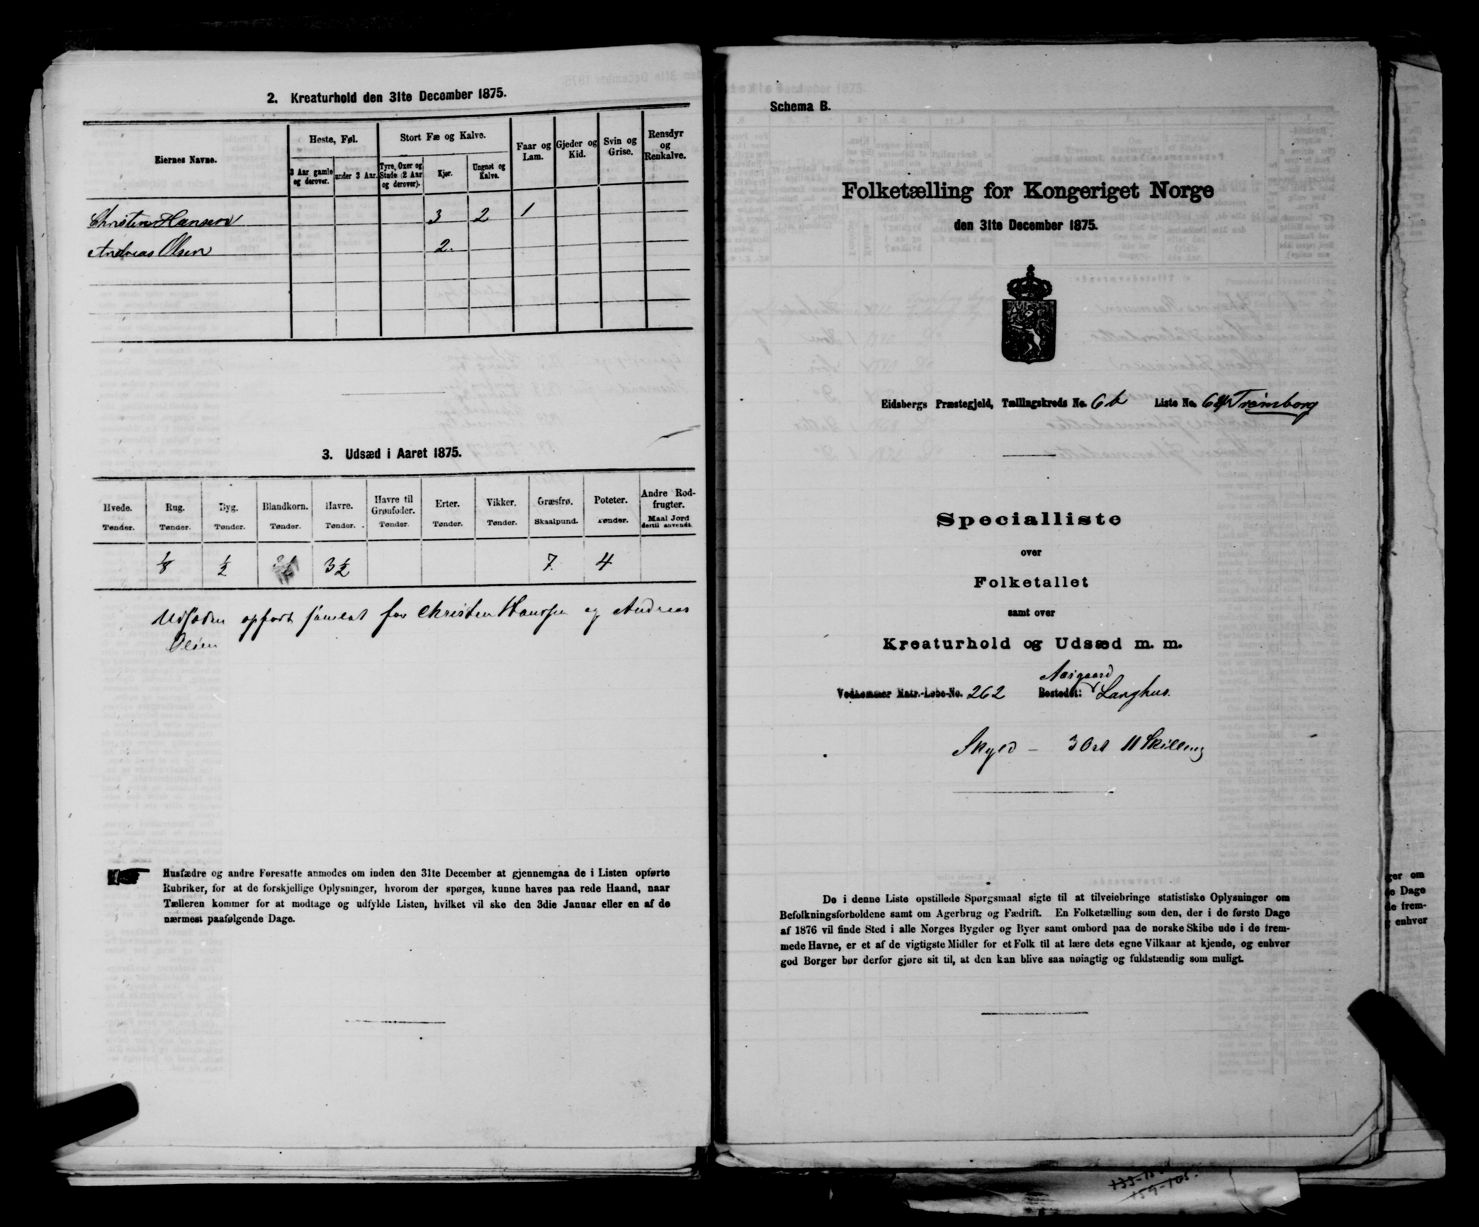 2. Kreaturhold den 31te December 1875.
Eiernes Navne.
Heste, Føl.
Stort Fæ og Kalve.
Faar og Lam.
Gjeder og Kid.
Svin og Grise.
Rensdyr og Renkalve.
3 Aar gamle og derover.
under 3 Aar.
Tyre, Oxer og Stude (2 Aar og derover).
Kjør.
Ungnøt og Kalve.
Christen Hansen 3 2 1
Andreas Olsen 2.
3. Udsæd i Aaret 1875.
Hvede. Rug. Byg. Blandkorn. Havre. Havre til Grønfoder. Erter. Vikker. Græsfrø. Poteter. Andre Rodfrugter.
Tønder. Tønder. Tønder. Tønder. Tønder. Tønder. Tønder. Tønder. Skaalpund. Tønder. Maal Jord dertil anvendt.
1/8 1/2 3 1/2 7. 4
Udsæden opført samlet for Christen Hanssen og Andreas
Olsen
Husfædre og andre Foresatte anmodes om inden den 31te December at gjennemgaa de i Listen opførte
Rubriker, for at de forskjellige Oplysninger, hvorom der spørges, kunne haves paa rede Haand, naar
Tælleren kommer for at modtage og udfylde Listen, hvilket vil ske den 3die Januar eller en af de
nærmest paafølgende Dage.
Schema B.
Folketælling for Kongeriget Norge
den 31te December 1875.
Eidsbergs Præstegjeld, Tællingskreds No. 6 Liste No. 64 Trømborg
Specialliste
over
Folketallet
samt over
Kreaturhold og Udsæd m. m.
Aasgaard
Vedkommer Matr.-Løbe-No. 262 Bostedet: Langhus.
Skyld – 3 Ort 11 Skilling
De i denne Liste opstillede Spørgsmaal sigte til at tilveiebringe statistiske Oplysninger om
Befolkningsforholdene samt om Agerbrug og Fædrift. En Folketælling som den, der i de første Dage
af 1876 vil finde Sted i alle Norges Bygder og Byer samt ombord paa de norske Skibe ude i de frem-
mede Havne, er et af de vigtigste Midler for et Folk til at lære dets egne Vilkaar at kjende, og enhver
god Borger bør derfor gjøre sit til, at den kan blive saa nøiagtig og fuldstændig som muligt.